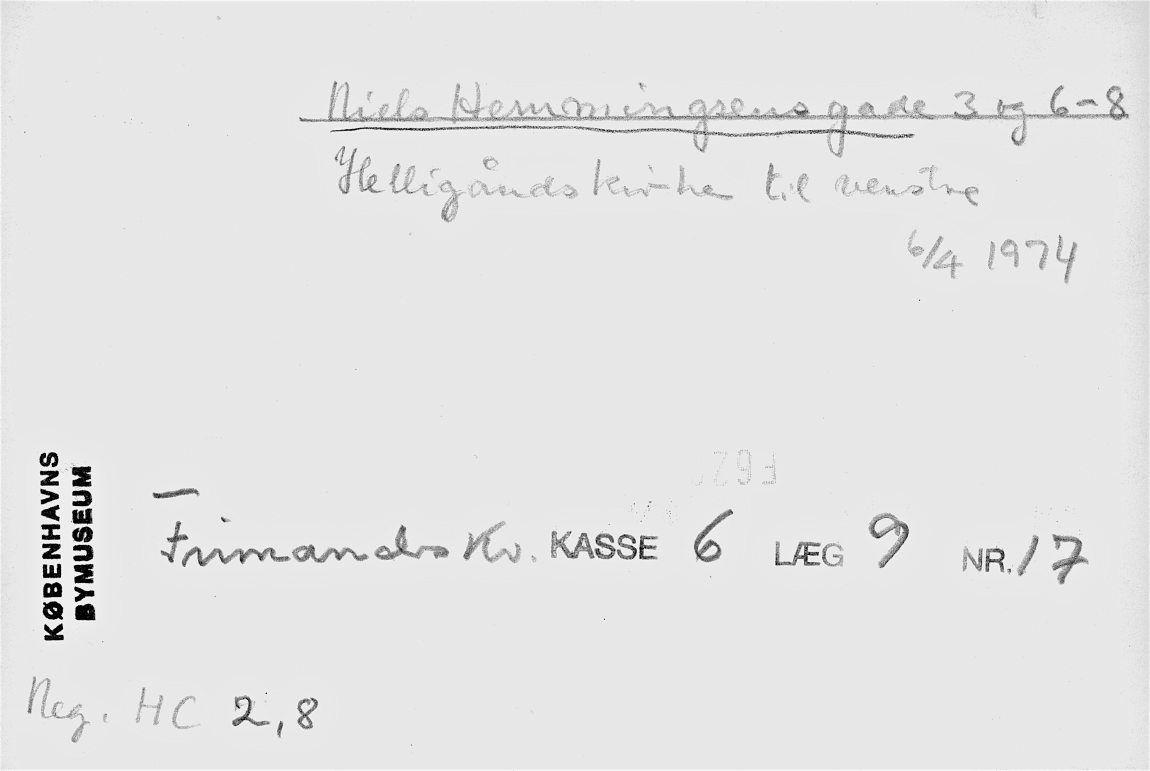 Niels Hemmingsens gade 3 og 6-8
Helligåndskirke til venstre
6/4 1974
KØBENHAVNS
BYMUSEUM
Frimands Kv. KASSE 6 LÆG 9 NR. 17
Neg. HC 2,8